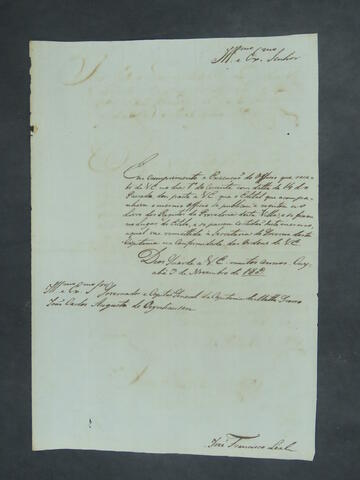 Ill.mo e Ex.mo Senhor
Em cumprimento e Execuçaõ do Officio que rece-
bi de V.Ex.ª no dia 1º do Corrente com data de 14 do
Passado, dou parte a V.Ex.ª que o Edital que acompa-
nhou o mesmo Officio se publicou e registou no
Livro dos Registos da Provedoria desta Villa; e se fixou
no Lugar do Estilo, e se passou
qual vai remettida a Secretaria do Governo desta
Capitania na Conformidade das Ordens de V.Ex.ª
Deos Guarde a V.Ex.ª muitos annos Cuy-
abá 3 de Novembro de
Ill.mo e Ex.mo Sr. Governador e Capitaõ General da Capitania de Matto Grosso
Joaõ Carlos Augusto de Oeynhausen
José Francisco Leal